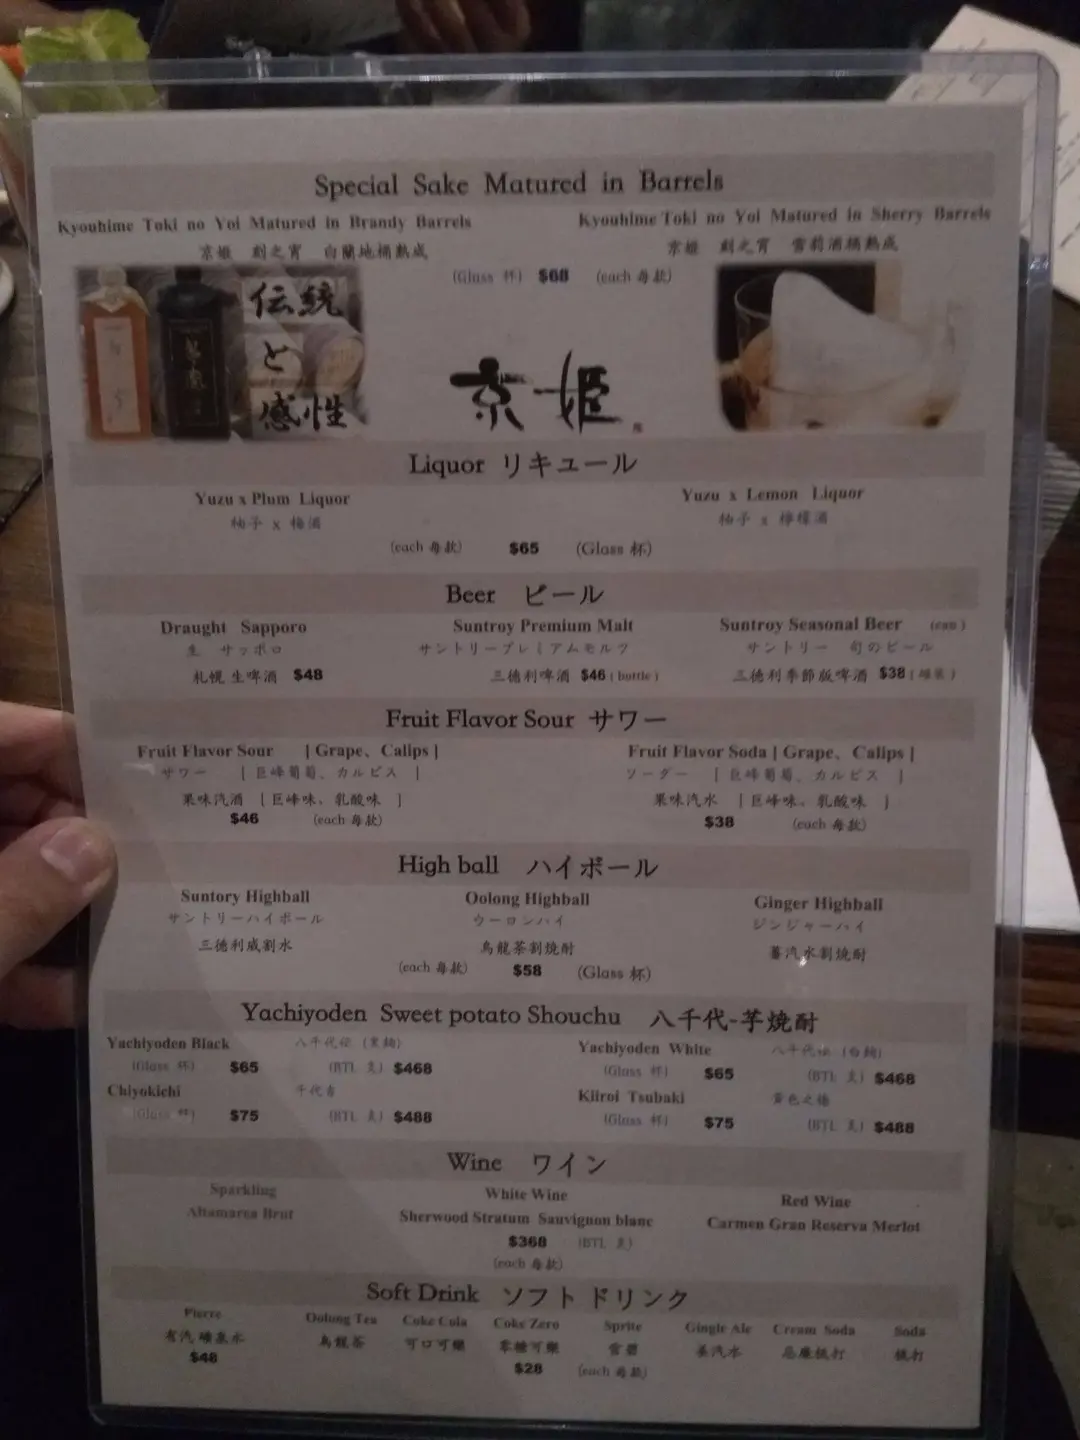 Special Sake Matured in Barrels
Kyouhime Toki no Yoi Matured in Brandy Barrels
Kyouhime Toki no Yoi Matured in Sherry Barrels
京姫 刻之宵 白蘭地桶熟成
京姫 刻之宵 雪莉酒桶熟成
(Glass 杯) $68 (each 每款)
伝統
と
感性
京姫
Liquor リキュール
Yuzu x Plum Liquor
Yuzu x Lemon Liquor
柚子 x 梅酒
柚子 x 檸檬酒
(each 每款) $65 (Glass 杯)
Beer ビール
Draught Sapporo
Suntroy Premium Malt
Suntroy Seasonal Beer (can)
生 サッポロ
サントリープレミアムモルツ
サントリー 旬のビール
札幌 生啤酒 $48
三德利啤酒 $46 (bottle)
三德利季節版啤酒 $38 (罐裝)
Fruit Flavor Sour サワー
Fruit Flavor Sour | Grape、Calips |
Fruit Flavor Soda | Grape、Calips |
サワー | 巨峰葡萄、カルピス |
ソーダー | 巨峰葡萄、カルピス |
果味汽酒 [ 巨峰味、乳酸味 ]
果味汽水 [ 巨峰味、乳酸味 ]
$46 (each 每款)
$38 (each 每款)
High ball ハイボール
Suntory Highball
Oolong Highball
Ginger Highball
サントリーハイボール
ウーロンハイ
ジンジャーハイ
三德利威割水
烏龍茶割燒酎
薑汽水割燒酎
(each 每款) $58 (Glass 杯)
Yachiyoden Sweet potato Shouchu 八千代-芋焼酎
Yachiyoden Black 八千代伝 (黑麹)
Yachiyoden White 八千代伝 (白麹)
(Glass 杯) $65 (BTL 支) $468
(Glass 杯) $65 (BTL 支) $468
Chiyokichi 千代吉
Kiiroi Tsubaki 黃色之椿
(Glass 杯) $75 (BTL 支) $488
(Glass 杯) $75 (BTL 支) $488
Wine ワイン
Sparkling
White Wine
Red Wine
Altamarea Brut
Sherwood Stratum Sauvignon blanc
Carmen Gran Reserva Merlot
$368 (BTL 支)
(each 每款)
Soft Drink ソフトドリンク
Pierre Oolong Tea Coke Cola Coke Zero Sprite Gingle Ale Cream Soda Soda
有汽礦泉水 烏龍茶 可口可樂 零糖可樂 雪碧 薑汽水 忌廉梳打 梳打
$48 $28 (each 每款)